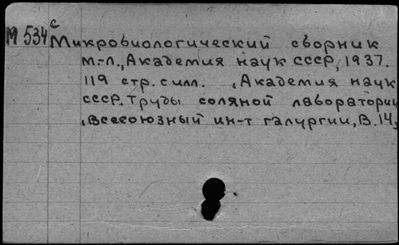 М 534 с
Микробиологический сборник
М.-Л., Академия наук СССР, 1937.
119 стр. с илл. , Академия наук
СССР. Труды соляной лаборатории
, Всесоюзный ин-т галургии, В.14,